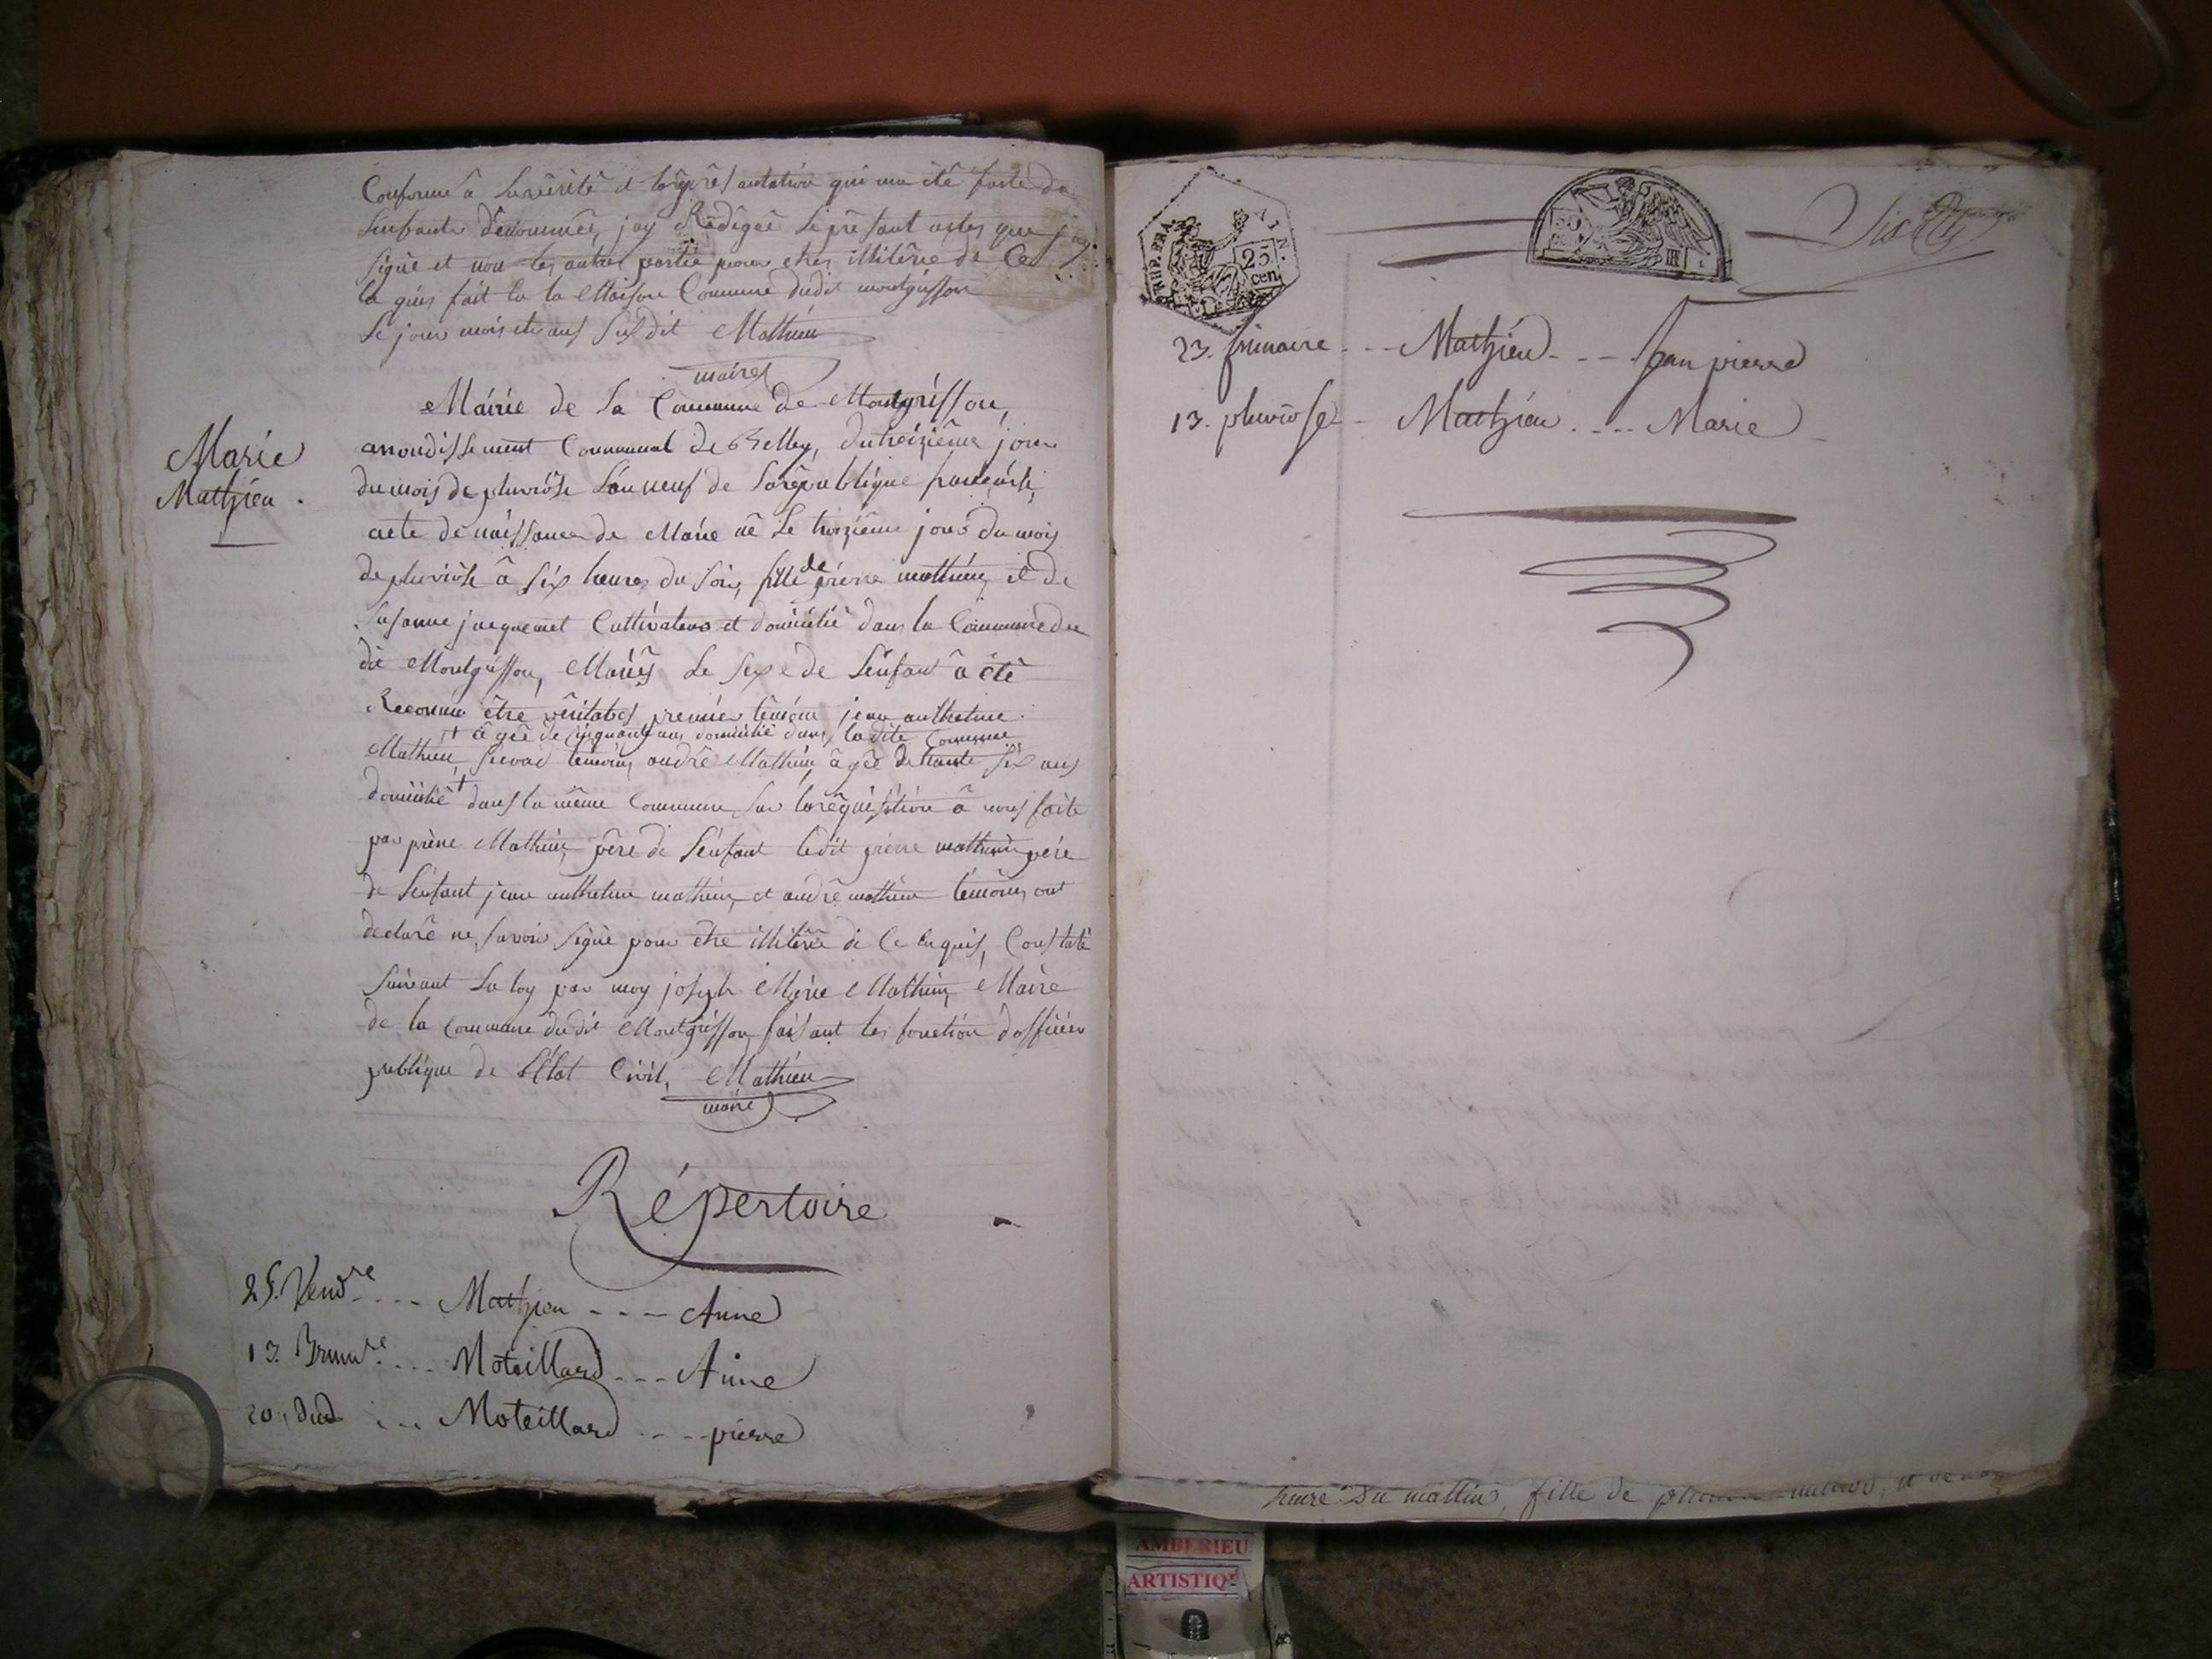 Conforme â la vêritê et la reprêsantation qui ma êtê faite de
Lenfants dênommêe, jay Rêdigêe Le prêsant actes que jay
signê et non les autres partie pour etres illitêrê de Ce
la quis fait En la Maison Commune dudit montgriffon
Le jour mois et ans susdit Mathieu
maire
Mairie de la Commune de Montgriffon,
arrondissement Communal de Belley, du treiziême jour
du mois de pluviôse L'an neuf de La rêpublique française,
Marie
Mathieu.
acte de naissance de Marie nê Le treiziême jour du mois
de pluviôse â six heures du soir, fille de pierre mathieu, et de
Susanne jacquemet Cultivateur et domiciliê dans la Commune du
dit Montgriffon, Mariês Le sexe de Lenfant â êtê
Reconnu être vêritables premier têmoin jean anthelme
+ âgêe de cinquante ans domiciliê dans ladite Commune
Mathieu, second têmoin, andrê Mathieu âgêe de trante six ans
domiciliê + dans la même Commune, Sur la rêquisition â nous faite
par pierre Mathieu, pêre de L'enfant ledit pierre mathieu pêre
de L'enfant jean anthelme mathieu, et andrê mathieu têmoins, ont
declarê ne savoir signê pour être illitêrê de Ce Enquis, Constatê
suivant La loy par moy joseph Marie Mathieu, Maire
de la Commune dudit Montgriffon, faisant les fonction d'officier
publique de L'Etat Civil, Mathieu
maire
Répertoire
25. Vend.re ... Mathieu --- Anne
13. Brum.re ... Moteillard --- Aime
20. dud. ... Moteillard ... pierre
REP. FRA.
25
cen
23. frimaire --- Mathieu --- Jean pierre
13. pluviose - Mathieu .... Marie
heure du mattin, fille de
AMBERIEU
ARTISTIQ